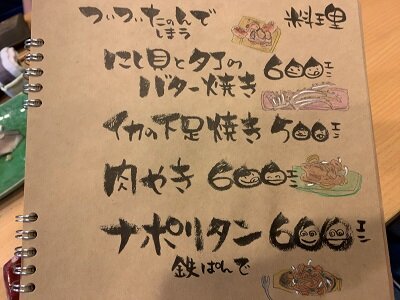 ついついたのんでしまう 料理
にし貝とタコの
バター焼き 600エン
イカの下足焼き 500エン
肉やき 600エン
ナポリタン 600エン
鉄ぱんで